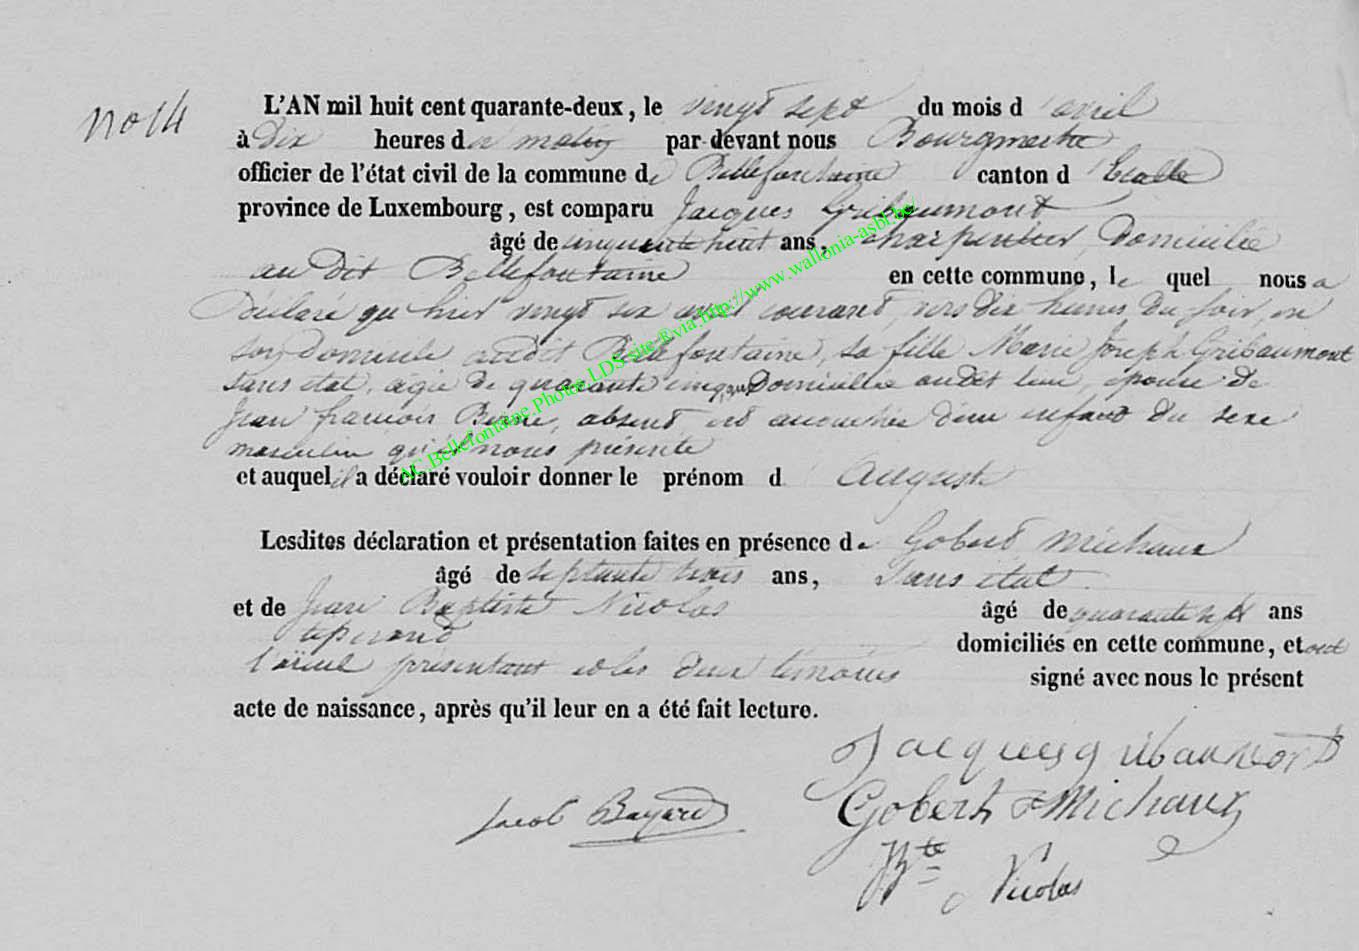 no 14
L'AN mil huit cent quarante-deux, le vingt sept du mois d'avril
à Dix heures du matin par-devant nous Bourgmestre
officier de l'état civil de la commune de Bellefontaine canton d'Etalle
province de Luxembourg, est comparu Jacques Gribaumont
âgé de cinquante huit ans, charpentier, Domicilié
au dit Bellefontaine en cette commune, le quel nous a
Déclaré qu'hier vingt six avril courant, vers dix heures du soir, en
son domicile audit Bellefontaine, sa fille Marie Joseph Gribaumont
sans état, agée de quarante cinq ans Domiciliée audit lieu, épouse de
Jean françois absent est accouchée d'un enfant du sexe
masculin qu'il nous présente
et auquel il a déclaré vouloir donner le prénom d'Auguste
Lesdites déclaration et présentation faites en présence de Gobert Michaux
âgé de septante trois ans, sans état
et de Jean Baptiste Nicolas âgé de quarante sept ans
tisserand domiciliés en cette commune, et ont
l'aïeul présentant et les deux témoins signé avec nous le présent
acte de naissance, après qu'il leur en a été fait lecture.
Jacques gribaumont
Jacob Bayard
Gobert Michaux
JBte Nicolas
AC Bellefontaine Photos LDS site ® via http://www.wallonia-asbl.be/